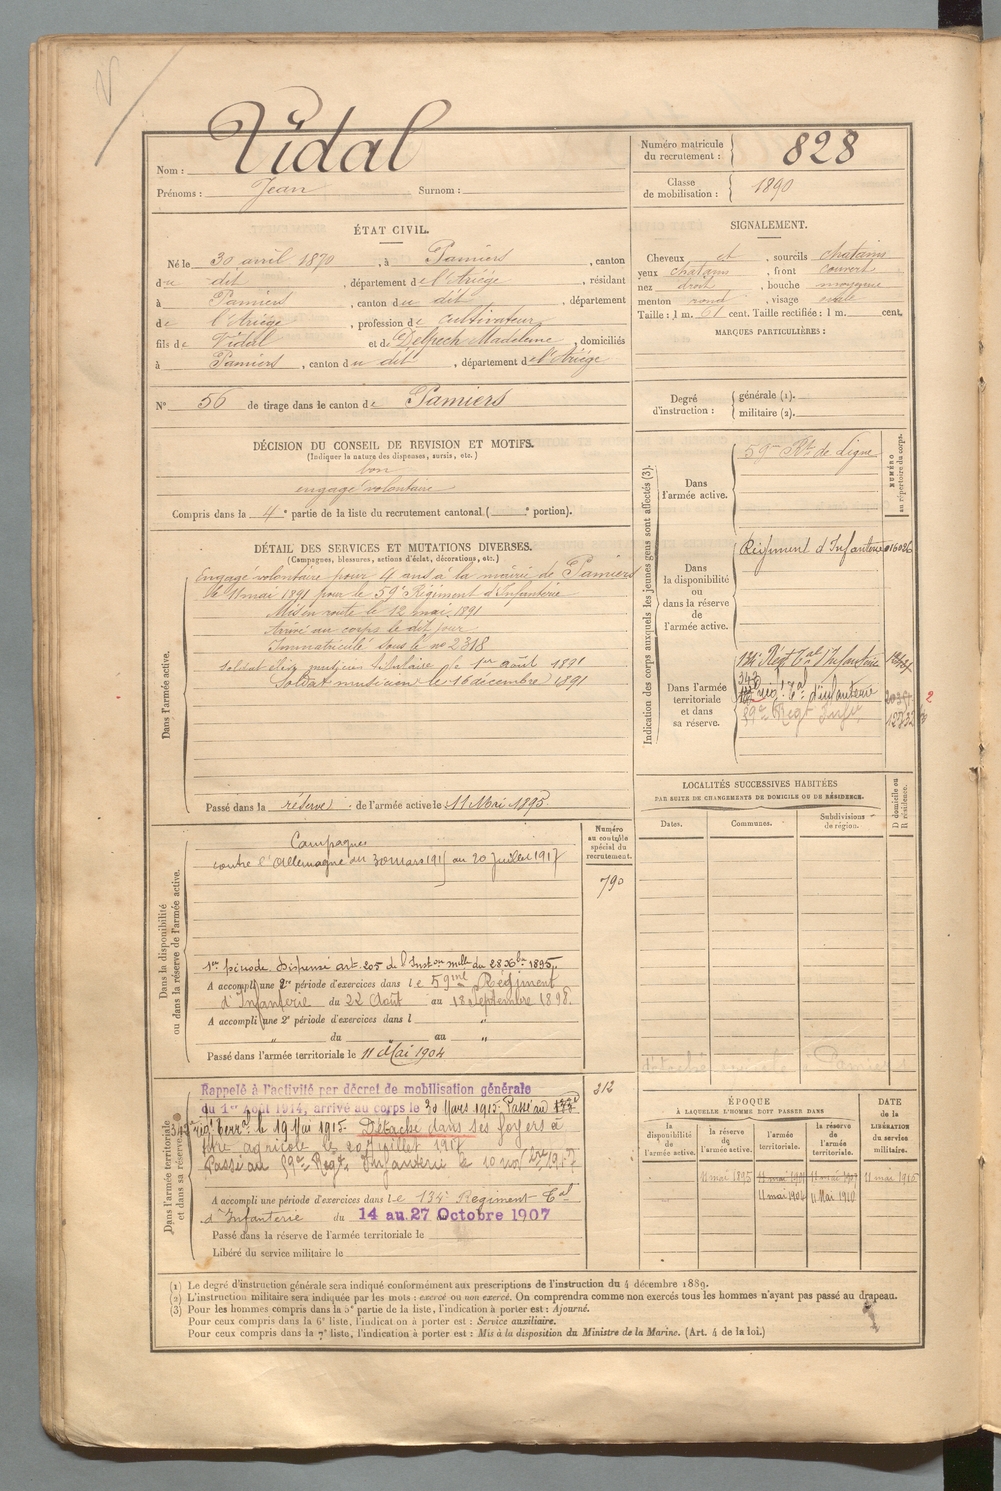 Nom : Vidal
Prénoms : Jean Surnom :
Numéro matricule du recrutement : 828
Classe de mobilisation : 1890
ÉTAT CIVIL.
Né le 30 avril 1870, à Pamiers, canton
du dit, département de l'Ariège, résidant
à Pamiers, canton du dit, département
de l'Ariège, profession de cultivateur
fils de Vidal et de Delpech Madeleine, domiciliés
à Pamiers, canton du dit, département de l'Ariège
N° 56 de tirage dans le canton de Pamiers
SIGNALEMENT.
Cheveux et, sourcils chatains
yeux chatains, front couvert
nez droit, bouche moyenne
menton rond, visage ovale
Taille : 1 m. 61 cent. Taille rectifiée : 1 m. cent.
MARQUES PARTICULIÈRES :
Degré d'instruction : générale (1).
militaire (2).
DÉCISION DU CONSEIL DE REVISION ET MOTIFS.
(Indiquer la nature des dispenses, sursis, etc.)
bon
engagé volontaire
Compris dans la 4e partie de la liste du recrutement cantonal ( e portion).
DÉTAIL DES SERVICES ET MUTATIONS DIVERSES.
(Campagnes, blessures, actions d'éclat, décorations, etc.)
Dans l'armée active.
Engagé volontaire pour 4 ans à la mairie de Pamiers
le 11 mai 1891 pour le 59e Régiment d'Infanterie
Mis en route le 12 mai 1891
Arrivé au corps le dit jour
Immatriculé sous le no 2318
Soldat élève musicien titulaire le 1er août 1891
Soldat musicien le 16 décembre 1891
Passé dans la réserve de l'armée active le 11 Mai 1895
Indication des corps auxquels les jeunes gens sont affectés (3).
NUMÉRO au répertoire du corps.
Dans l'armée active.
59me Rt de Ligne
Dans la disponibilité ou dans la réserve de l'armée active.
Régiment d'Infanterie 016026
Dans l'armée territoriale et dans sa réserve.
134e Regt Tal d'Infanterie
343
reg. Tal d'infanterie
2
89e Regt Infie
LOCALITÉS SUCCESSIVES HABITÉES
PAR SUITE DE CHANGEMENTS DE DOMICILE OU DE RÉSIDENCE.
Dates. Communes. Subdivisions de région. D domicile ou R résidence.
Dans la disponibilité ou dans la réserve de l'armée active.
Numéro au contrôle spécial du recrutement.
790
Campagnes
contre l'Allemagne du 30 mars 1915 au 20 Juillet 1917
1re période Dispensé art. 205 de l'Inston mlle du 28 Xbre 1895
A accompli une 2e période d'exercices dans le 59me Régiment
d'Infanterie du 22 Août au 18 Septembre 1898
A accompli une 2e période d'exercices dans l "
" du au "
Passé dans l'armée territoriale le 11 Mai 1904
Dans l'armée territoriale et dans sa réserve.
312
Rappelé à l'activité par décret de mobilisation générale
du 1er Août 1914, arrivé au corps le 30 Mars 1915. Passé au
343e reg. terral le 19 Mai 1915. Détaché dans ses foyers à
titre agricole le 20 Juillet 1917
Passé au 89e Regt Infanterie le 10 nov
A accompli une période d'exercices dans le 134e Régiment Tal
d'Infanterie du 14 au 27 Octobre 1907
Passé dans la réserve de l'armée territoriale le
Libéré du service militaire le
ÉPOQUE
À LAQUELLE L'HOMME DOIT PASSER DANS
la disponibilité de l'armée active.
la réserve de l'armée active.
l'armée territoriale.
la réserve de l'armée territoriale.
DATE de la LIBÉRATION du service militaire.
11 mai 1895 11 mai 1901 11 mai 1907 11 mai 1915
11 mai 1904 11 Mai 1910
(1) Le degré d'instruction générale sera indiqué conformément aux prescriptions de l'instruction du 4 décembre 1889.
(2) L'instruction militaire sera indiquée par les mots : exercé ou non exercé. On comprendra comme non exercés tous les hommes n'ayant pas passé au drapeau.
(3) Pour les hommes compris dans la 5e partie de la liste, l'indication à porter est : Ajourné.
Pour ceux compris dans la 6e liste, l'indication à porter est : Service auxiliaire.
Pour ceux compris dans la 7e liste, l'indication à porter est : Mis à la disposition du Ministre de la Marine. (Art. 4 de la loi.)